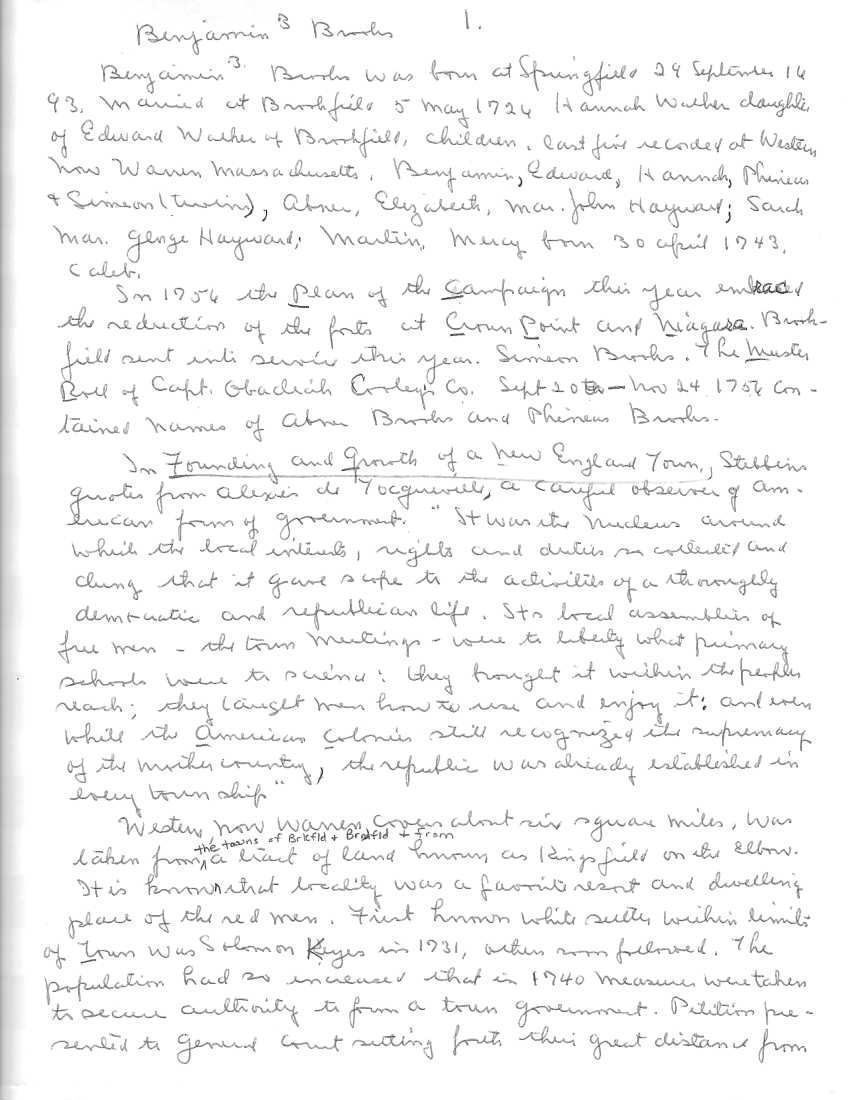 Benjamin³ Brooks 1.
Benjamin³. Brooks was born at Springfield 29 September 16
93. Married at Brookfield 5 May 1724 Hannah Walker daughter
of Edward Walker of Brookfield, Children, last five recorded at Western
now Warren Massachusetts. Benjamin, Edward, Hannah, Phineas
& Simeon (twins), Abner, Elizabeth, mar. John Hayward; Sarah
mar. George Hayward; Martin, Mercy born 30 April 1743,
Caleb.
In 1756 the Plan of the Campaign this year embraced
the reduction of the forts at Crown Point and Niagara. Brook-
field sent into service this year. Simeon Brooks. The Muster
Roll of Capt. Obadiah Cooley's Co. Sept 20th — Nov 24 1756 con-
tained names of Abner Brooks and Phineas Brooks.
In Founding and Growth of a New England Town, Stebbins
quotes from Alexis de Tocqueville, a careful observer of Am-
erican form of government. "It was the nucleus around
which the local interests, rights and duties so collected and
clung that it gave scope to the activities of a thoroughly
democratic and republican life. Its local assemblies of
free men - the town meetings - were to liberty what primary
schools were to science: they brought it within the peoples
reach; they taught men how to use and enjoy it: and even
while the American Colonies still recognized the supremacy
of the mother country, the republic was already established in
every township"
Western, now Warren, covers about six square miles, was
the towns of Brkfld & Brmfld & from
taken from ^ a tract of land known as Kingsfield on the Elbow.
It is known that locality was a favorite resort and dwelling
place of the red men. First known white settler within limits
of Town was Solomon Keyes in 1731, others soon followed. The
population had so increased that in 1740 measures were taken
to secure authority to form a town government. Petition pre-
sented to General Court setting forth their great distance from